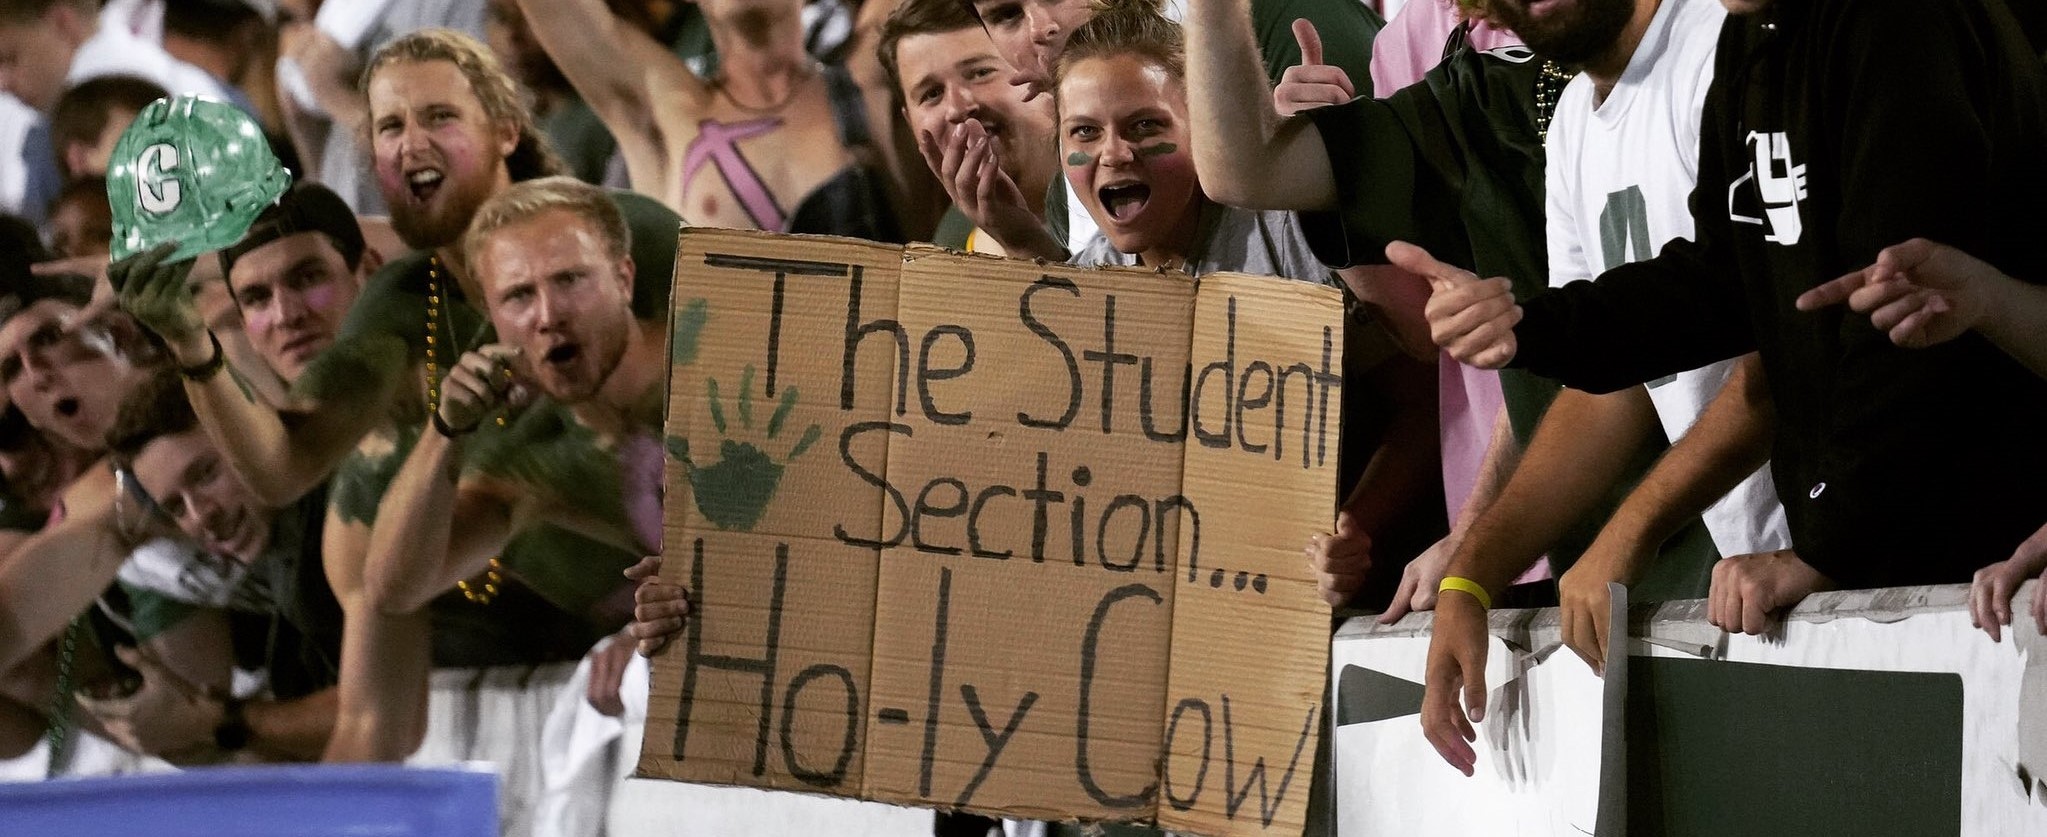 C
The Student
Section...
Ho-ly Cow